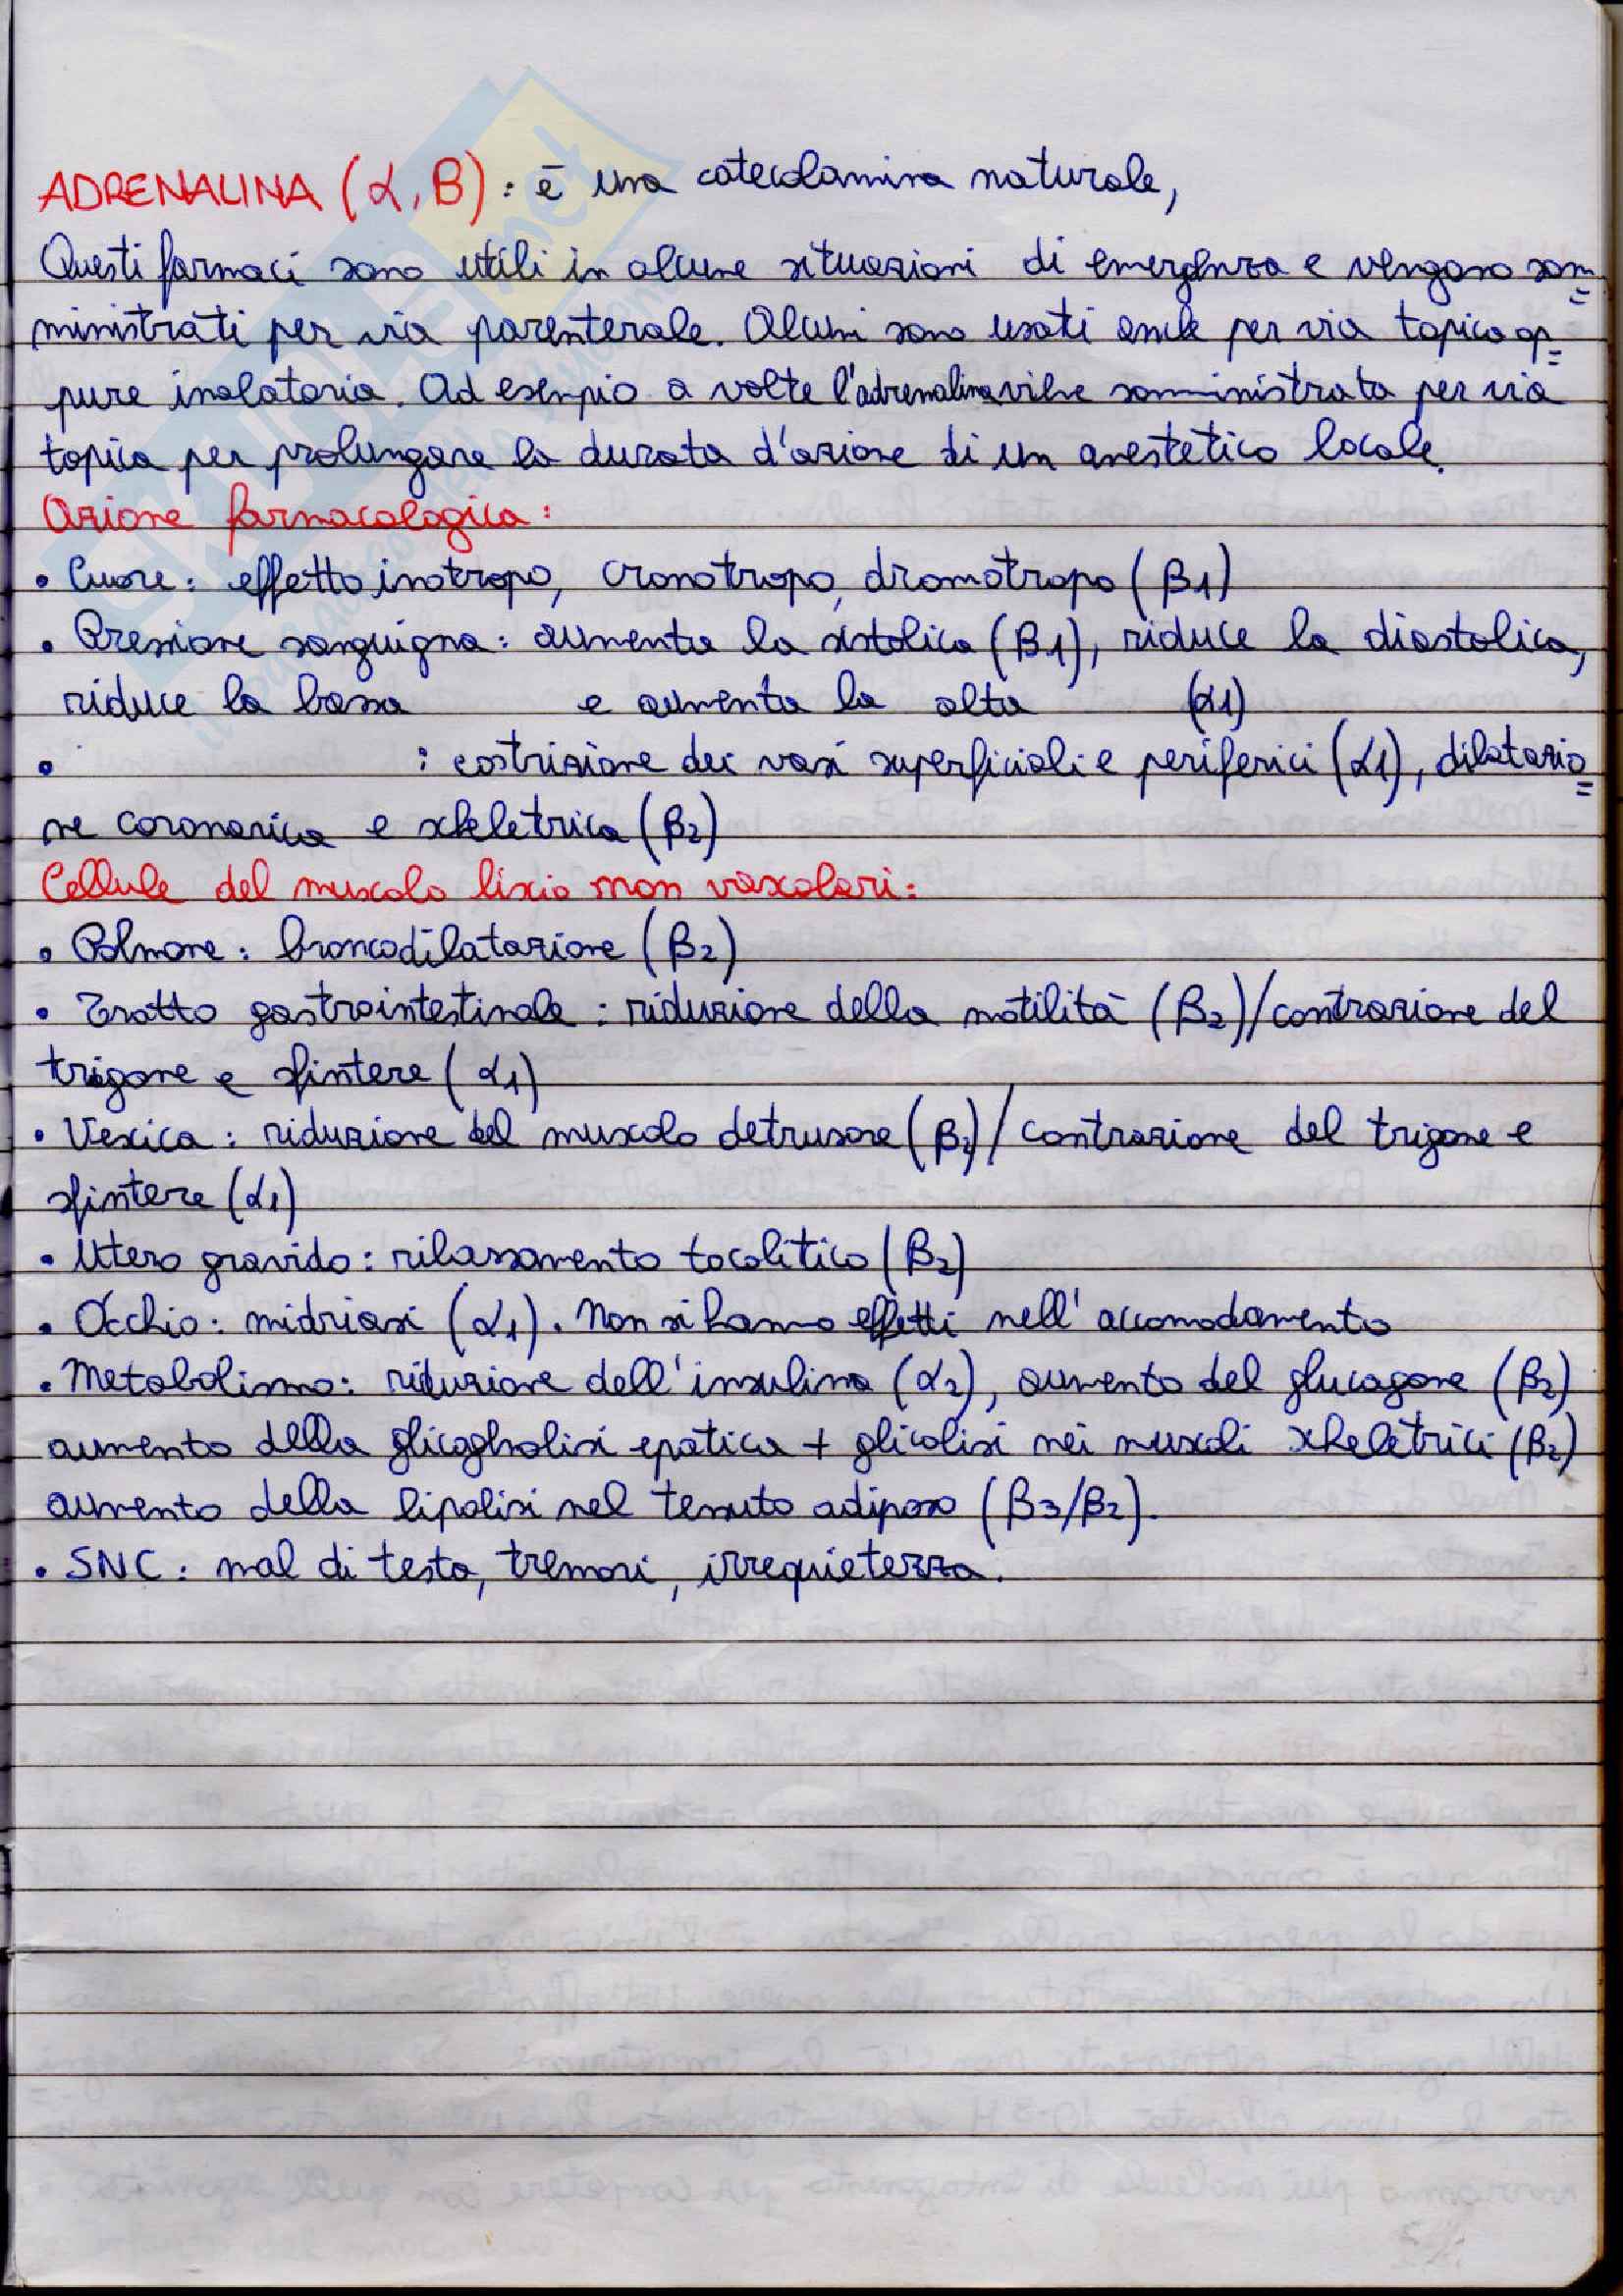 ADRENALINA (α, B): è una catecolamina naturale,
Questi farmaci sono utili in alcune situazioni di emergenza e vengono som=
ministrati per via parenterale. Alcuni sono usati anche per via topica op=
pure inalatoria. Ad esempio a volte l'adrenalina viene somministrata per via
topica per prolungare la durata d'azione di un anestetico locale.
Azione farmacologica:
• Cuore: effetto inotropo, cronotropo, dromotropo (β1)
• Pressione sanguigna: aumenta la sistolica (β1), riduce la diastolica,
riduce la bassa e aumenta la alta (α1)
• : costrizione dei vasi superficiali e periferici (α1), dilatazio=
ne coronarica e scheletrica (β2)
Cellule del muscolo liscio non vascolari:
• Polmone: broncodilatazione (β2)
• Tratto gastrointestinale: riduzione della motilità (β2)/contrazione del
trigone e sfintere (α1)
• Vescica: riduzione del muscolo detrusore (β2)/contrazione del trigone e
sfintere (α1)
• Utero gravido: rilassamento tocolitico (β2)
• Occhio: midriasi (α1). Non si hanno effetti nell'accomodamento
• Metabolismo: riduzione dell'insulina (α2), aumento del glucagone (β2)
aumento della epatica + glicolisi nei muscoli scheletrici (β2)
aumento della lipolisi nel tessuto adiposo (β3/β2).
• SNC: mal di testa, tremori, irrequietezza.